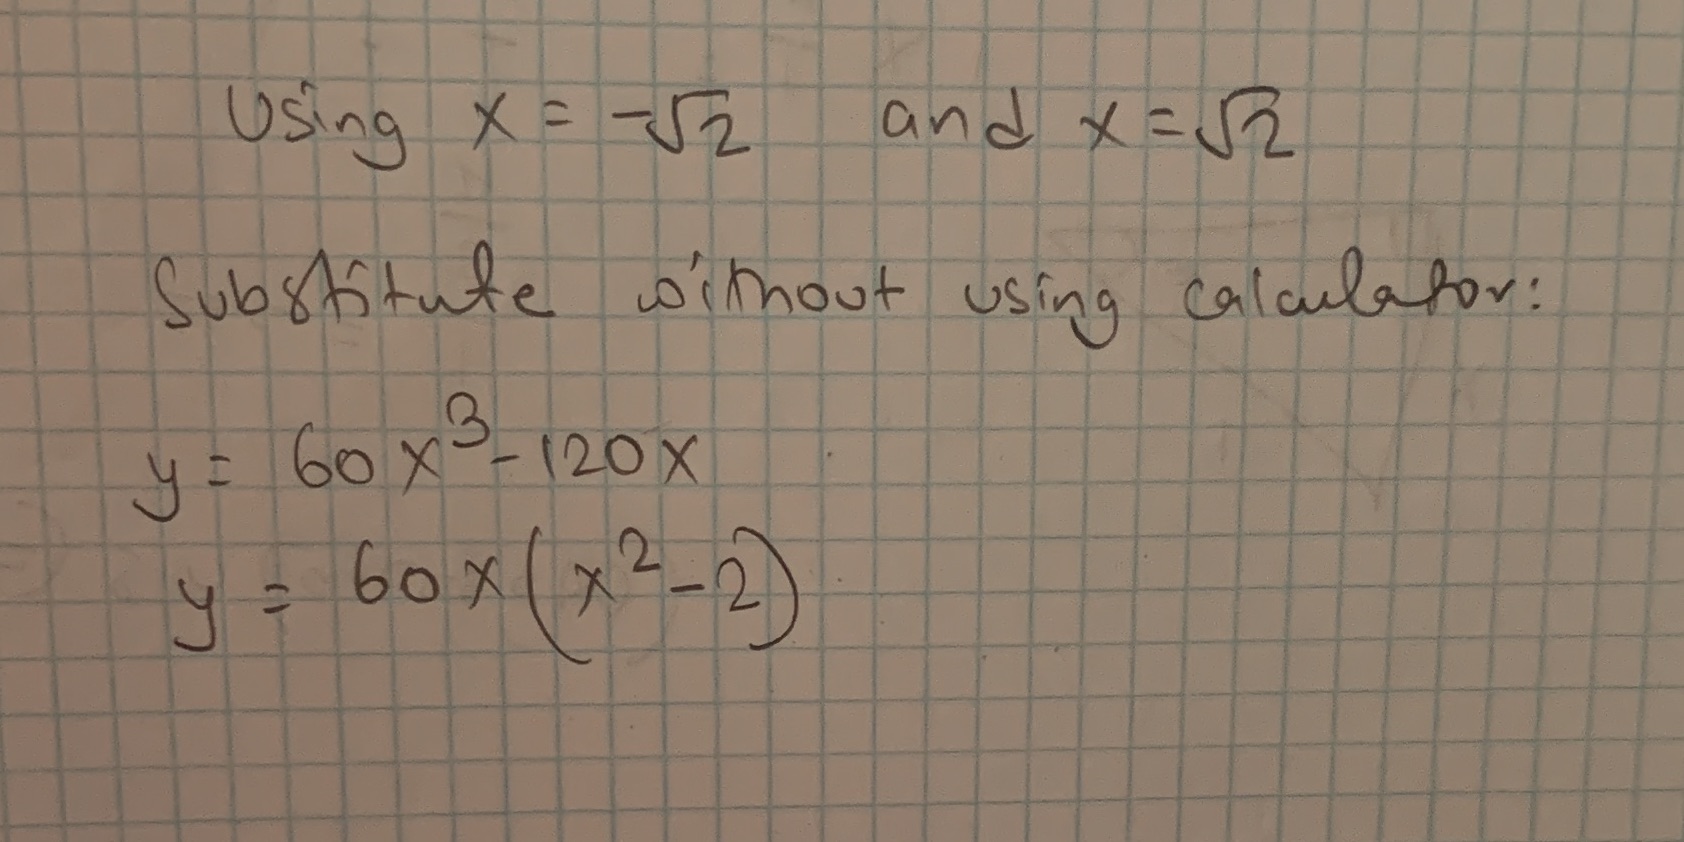 Using x = -√2 and x = √2
Substitute without using calculator:
y = 60x³ - 120x
y = 60x(x² - 2)